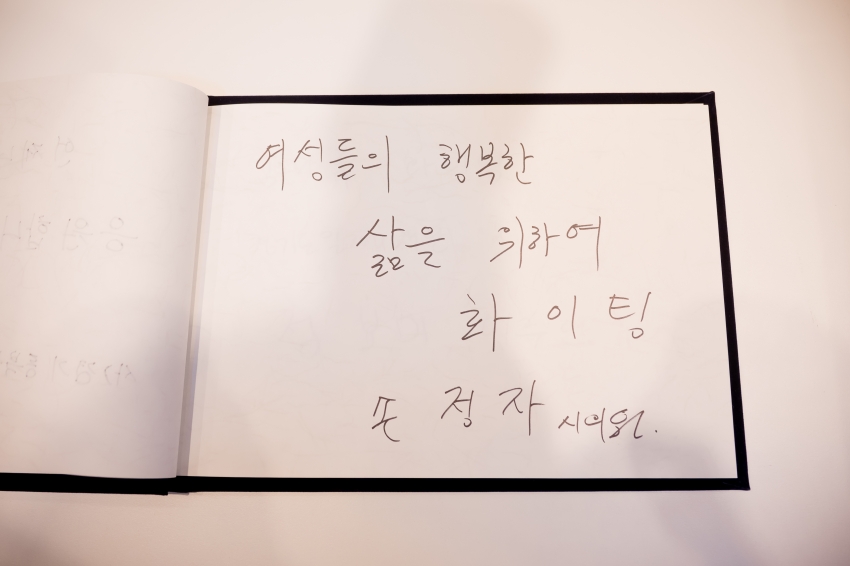 여성들의 행복한
삶을 위하여
화이팅
손정자 시의원.